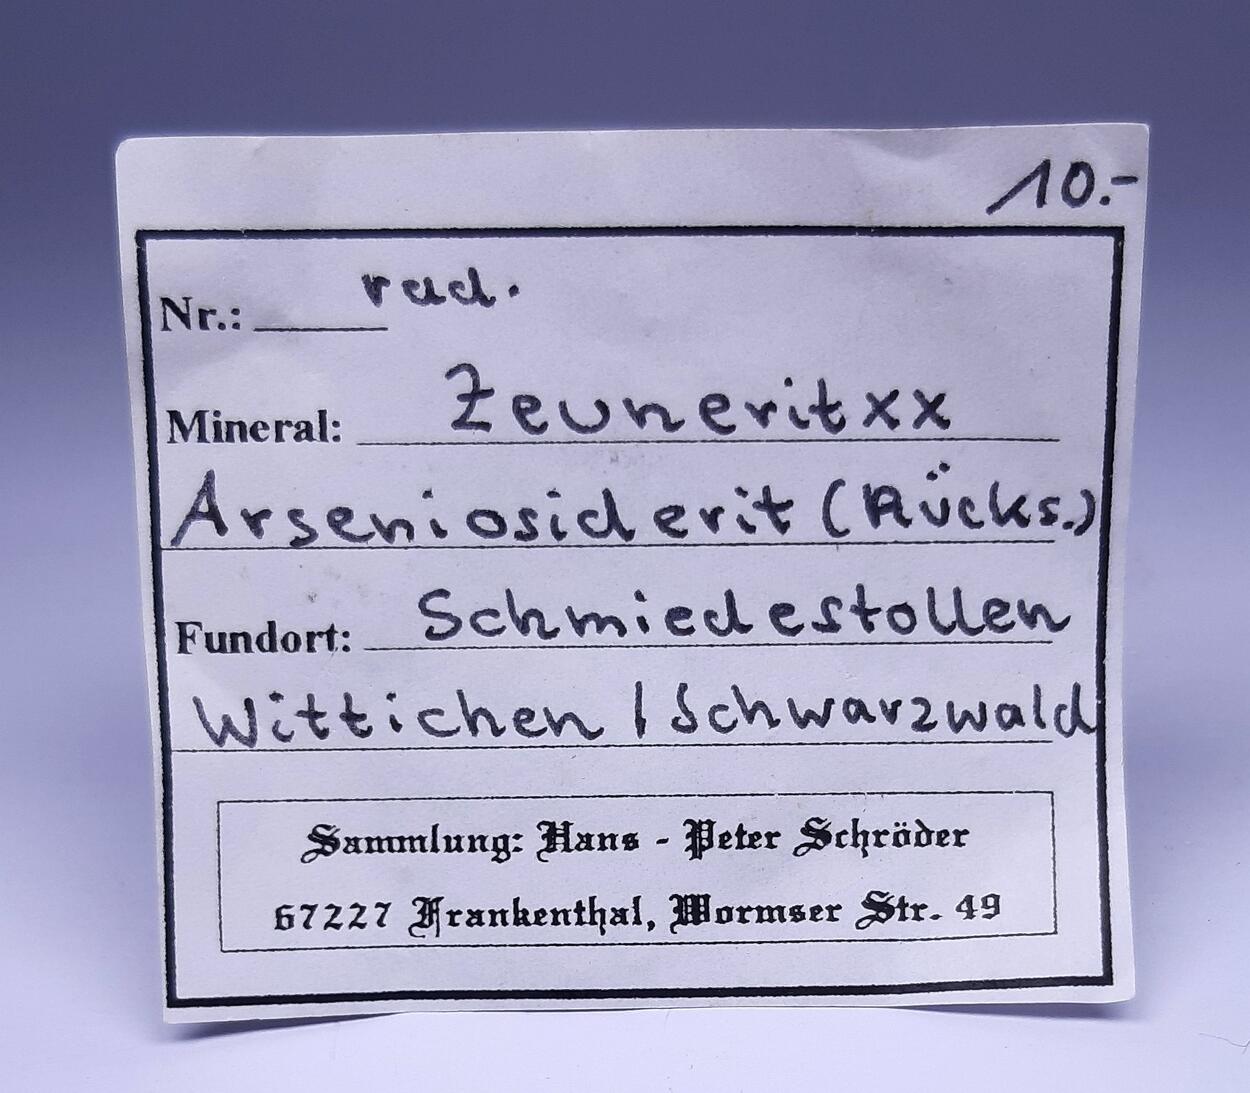 10.-
Nr.: rad.
Mineral: Zeunerit xx
Arseniosiderit (Rücks.)
Fundort: Schmiedestollen
Wittichen / Schwarzwald
Sammlung: Hans - Peter Schröder
67227 Frankenthal, Wormser Str. 49